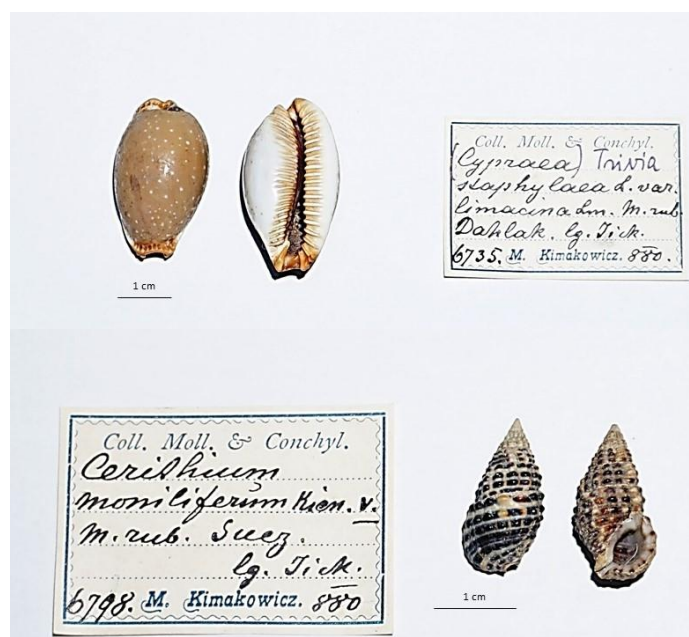 Coll. Moll. & Conchyl.
(Cypraea) Trivia
staphylaea L. var.
limacina Lm. M. rub.
Dahlak. lg. Jick.
6735. M. Kimakowicz. 880.
1 cm
Coll. Moll. & Conchyl.
Cerithium
moniliferum Kien. v.
M. rub. Suez.
lg. Jick.
6798. M. Kimakowicz. 880
1 cm